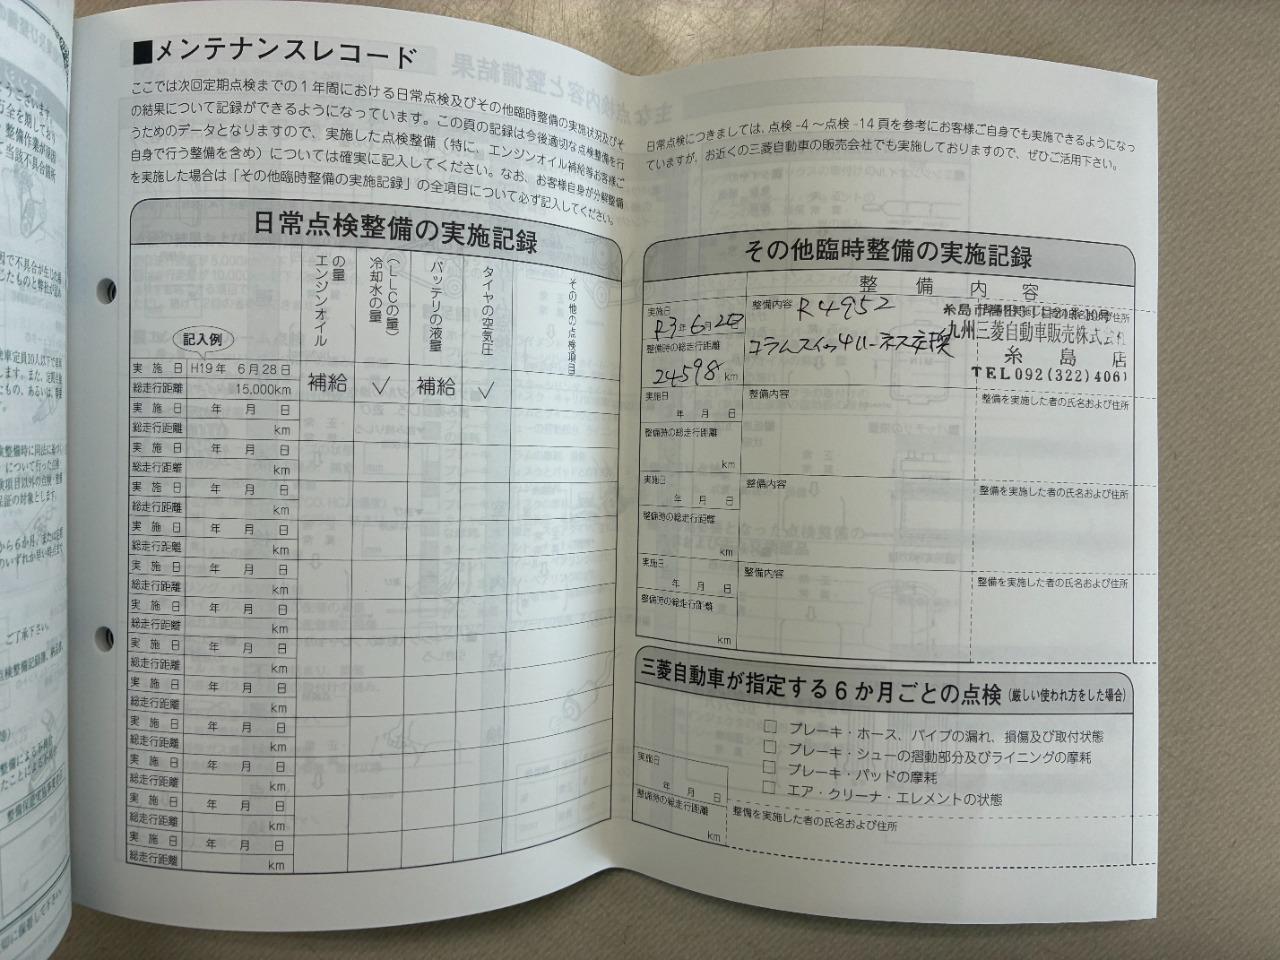 ■メンテナンスレコード
ここでは次回定期点検までの1年間における日常点検及びその他臨時整備の実施状況及びそ
の結果について記録ができるようになっています。この頁の記録は今後適切な点検整備を行
うためのデータとなりますので、実施した点検整備（特に、エンジンオイル補給等お客様ご
自身で行う整備を含め）については確実に記入してください。なお、お客様自身が分解整備
を実施した場合は「その他臨時整備の実施記録」の全項目について必ず記入してください。
日常点検整備の実施記録
エンジンオイルの量
冷却水の量（LLCの量）
バッテリの液量
タイヤの空気圧
その他の点検項目
記入例
実施日 H19年 6月28日
総走行距離 15,000km
補給 ✓ 補給 ✓
実施日 年 月 日
総走行距離 km
実施日 年 月 日
総走行距離 km
実施日 年 月 日
総走行距離 km
実施日 年 月 日
総走行距離 km
実施日 年 月 日
総走行距離 km
実施日 年 月 日
総走行距離 km
実施日 年 月 日
総走行距離 km
実施日 年 月 日
総走行距離 km
実施日 年 月 日
総走行距離 km
実施日 年 月 日
総走行距離 km
実施日 年 月 日
総走行距離 km
実施日 年 月 日
総走行距離 km
日常点検につきましては、点検-4～点検-14頁を参考にお客様ご自身でも実施できるようになっ
ていますが、お近くの三菱自動車の販売会社でも実施しておりますので、ぜひご活用下さい。
その他臨時整備の実施記録
整備内容
実施日
R3年6月2日
整備時の総走行距離
24598km
整備内容 R4952
コラムスイッチハーネス交換
九州三菱自動車販売株式会社
糸島店
TEL092(322)4061
実施日
年 月 日
整備時の総走行距離
km
整備内容
整備を実施した者の氏名および住所
実施日
年 月 日
整備時の総走行距離
km
整備内容
整備を実施した者の氏名および住所
実施日
年 月 日
整備時の総走行距離
km
整備内容
整備を実施した者の氏名および住所
三菱自動車が指定する6か月ごとの点検（厳しい使われ方をした場合）
□ ブレーキ・ホース、パイプの漏れ、損傷及び取付状態
□ ブレーキ・シューの摺動部分及びライニングの摩耗
□ ブレーキ・パッドの摩耗
□ エア・クリーナ・エレメントの状態
実施日
年 月 日
整備時の総走行距離
km
整備を実施した者の氏名および住所